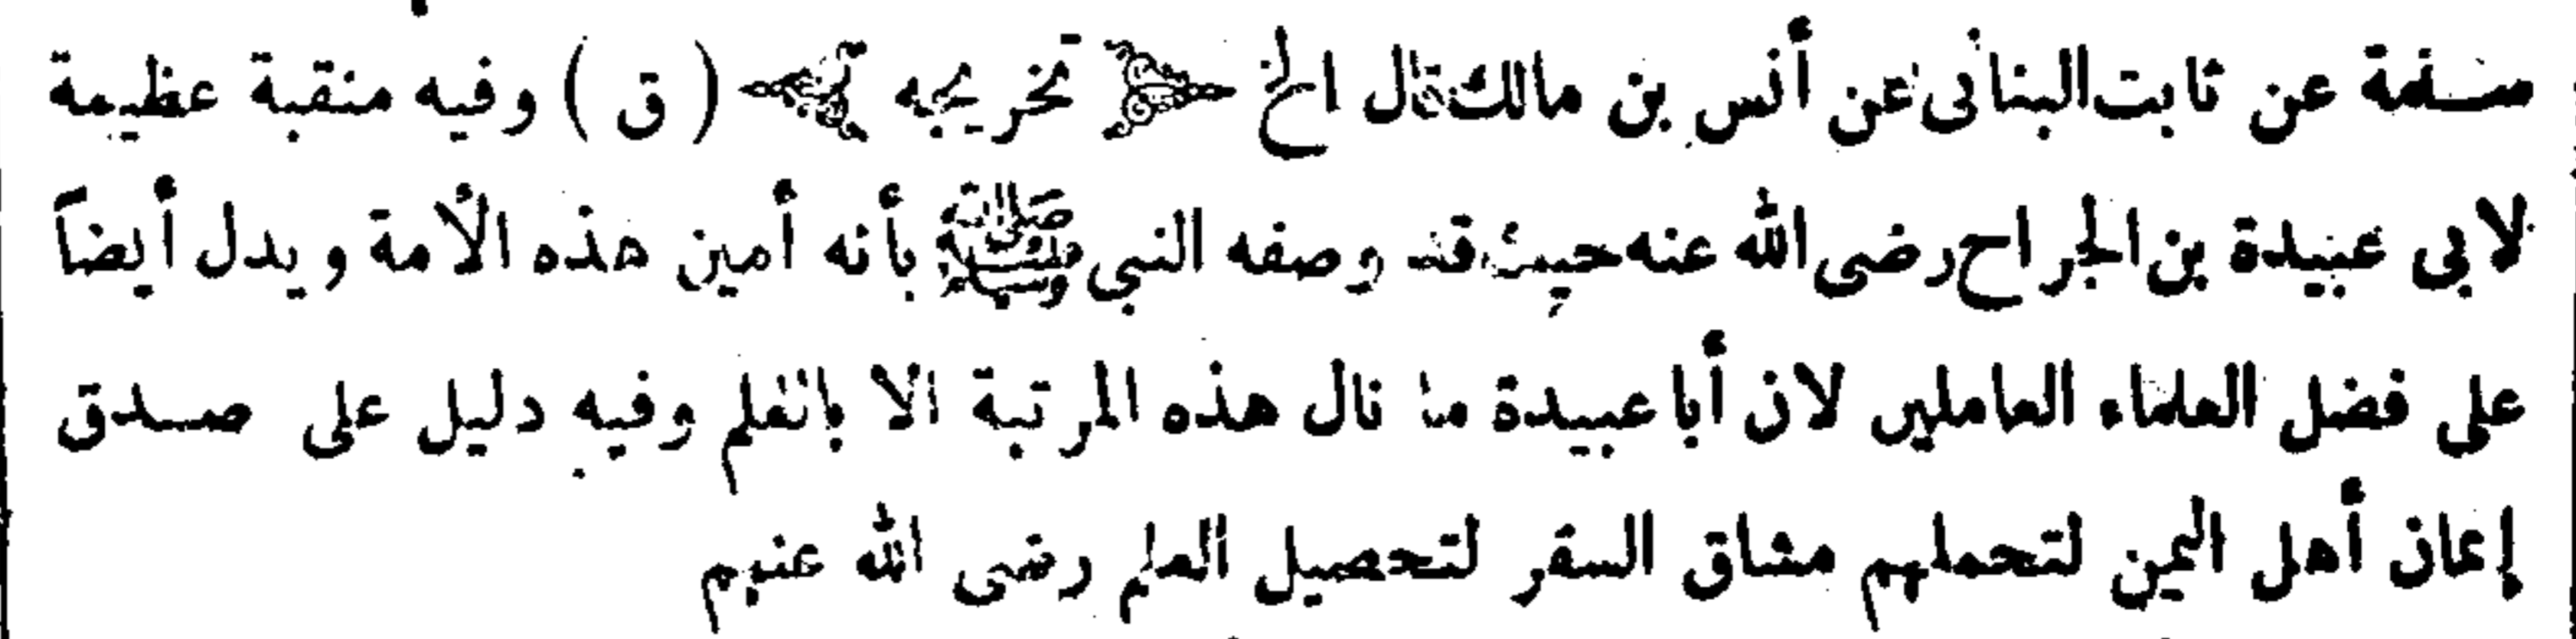 سلمة عن ثابت البنانى عن أنس بن مالك قال الخ ﴿ تخريجه ﴾ ( ق ) وفيه منقبة عظيمة
لابى عبيدة بن الجراح رضى الله عنه حيث قد وصفه النبى ﷺ بأنه أمين هذه الأمة ويدل أيضاً
على فضل العلماء العاملين لان أبا عبيدة ما نال هذه المرتبة الا بالعلم وفيه دليل على صدق
إيمان أهل اليمن لتحملهم مشاق السفر لتحصيل العلم رضى الله عنهم